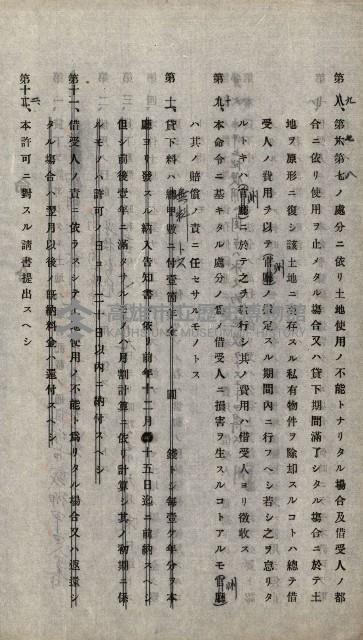 第八、第六、第七ノ處分ニ依リ土地使用ノ不能トナリタル場合及借受人ノ都
合ニ依リ使用ヲ止メタル場合又ハ貸下期間滿了シタル場合ニ於テ土
地ヲ原形ニ復シ該土地ニ存スル私有物件ヲ除却スルコトハ總テ借
受人ノ費用ヲ以テ官廳ノ指定スル期間內ニ行フヘシ若シ之ヲ怠リタ
ルトキハ官廳ニ於テ之ヲ執行シ其ノ費用ハ借受人ヨリ徵收ス
第九、本命令ニ基キタル處分ノ爲メ借受人ニ損害ヲ生スルコトアルモ官廳
ハ其ノ賠償ノ責ニ任セサルモノトス
第十、貸下料ハ總甲數ニ付壹箇年金 圓 錢トシ每壹ケ年分ヲ本
廳ヨリ發スル納入告知書ニ依リ前年十二月 十五日迄ニ前納スヘシ
但シ前後壹年ニ滿タサルモノハ月割計算ニ依リ計算シ其ノ初期ニ係
ルモノハ許可ノ日ヨリ二十日以內ニ納付スヘシ
第十一、借受人ノ責ニ依ラスシテ土地使用ノ不能ト爲リタル場合又ハ返還シ
タル場合ハ翌月以後ノ旣納料金ハ還付スヘシ
第十二、本許可ニ對スル請書提出スヘシ